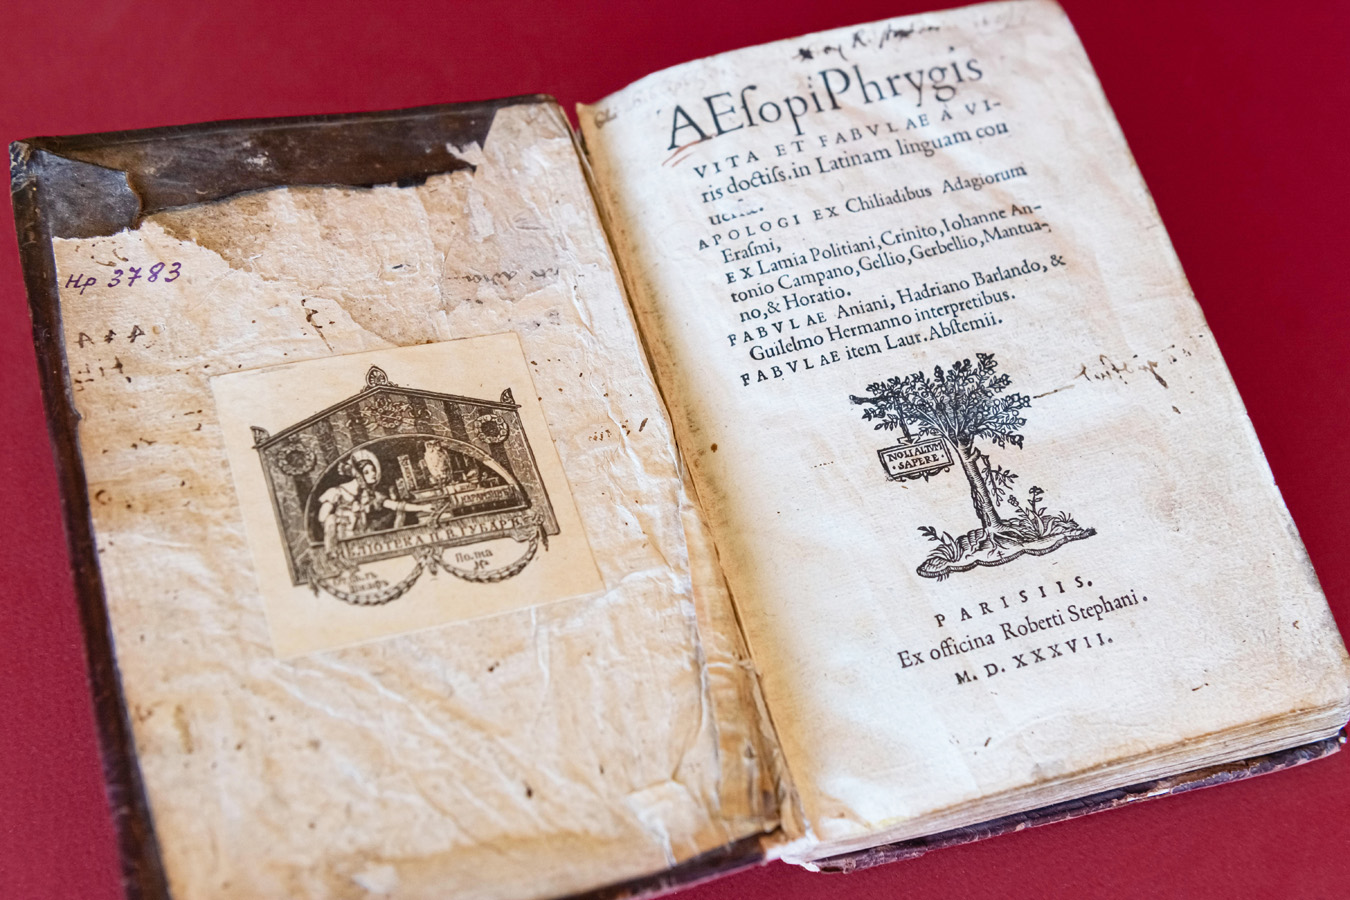 Нр 3783
БИБЛІОТЕКА П. В. ГУБАРА
Полка
№
AEſopiPhrygis
VITA ET FABVLAE A VI-
ris doctiſs.in Latinam linguam con
APOLOGI EX Chiliadibus Adagiorum
Eraſmi,
EX Lamia Politiani, Crinito, Iohanne An-
tonio Campano, Gellio, Gerbellio, Mantua-
no, & Horatio.
FABVLAE Aniani, Hadriano Barlando, &
Guilelmo Hermanno interpretibus.
FABVLAE item Laur. Abſtemii.
NOLI ALTVM
·SAPERE·
PARISIIS.
Ex officina Roberti Stephani.
M. D. XXXVII.